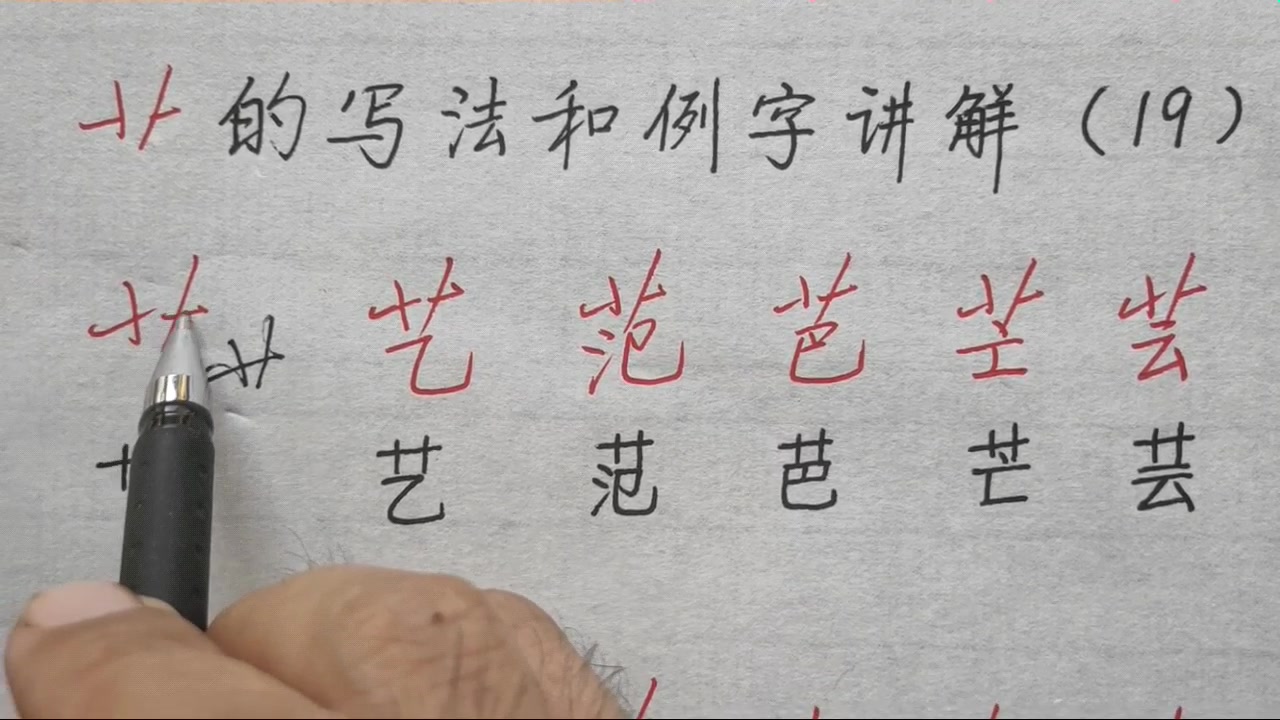 艹的写法和例字讲解（19）
艹 艹 艺 范 芭 芒 芸
艺 范 芭 芒 芸